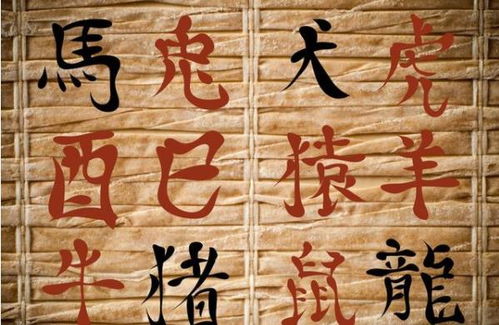 馬 兔 犬 虎
酉 巳 猿 羊
牛 猪 鼠 龍